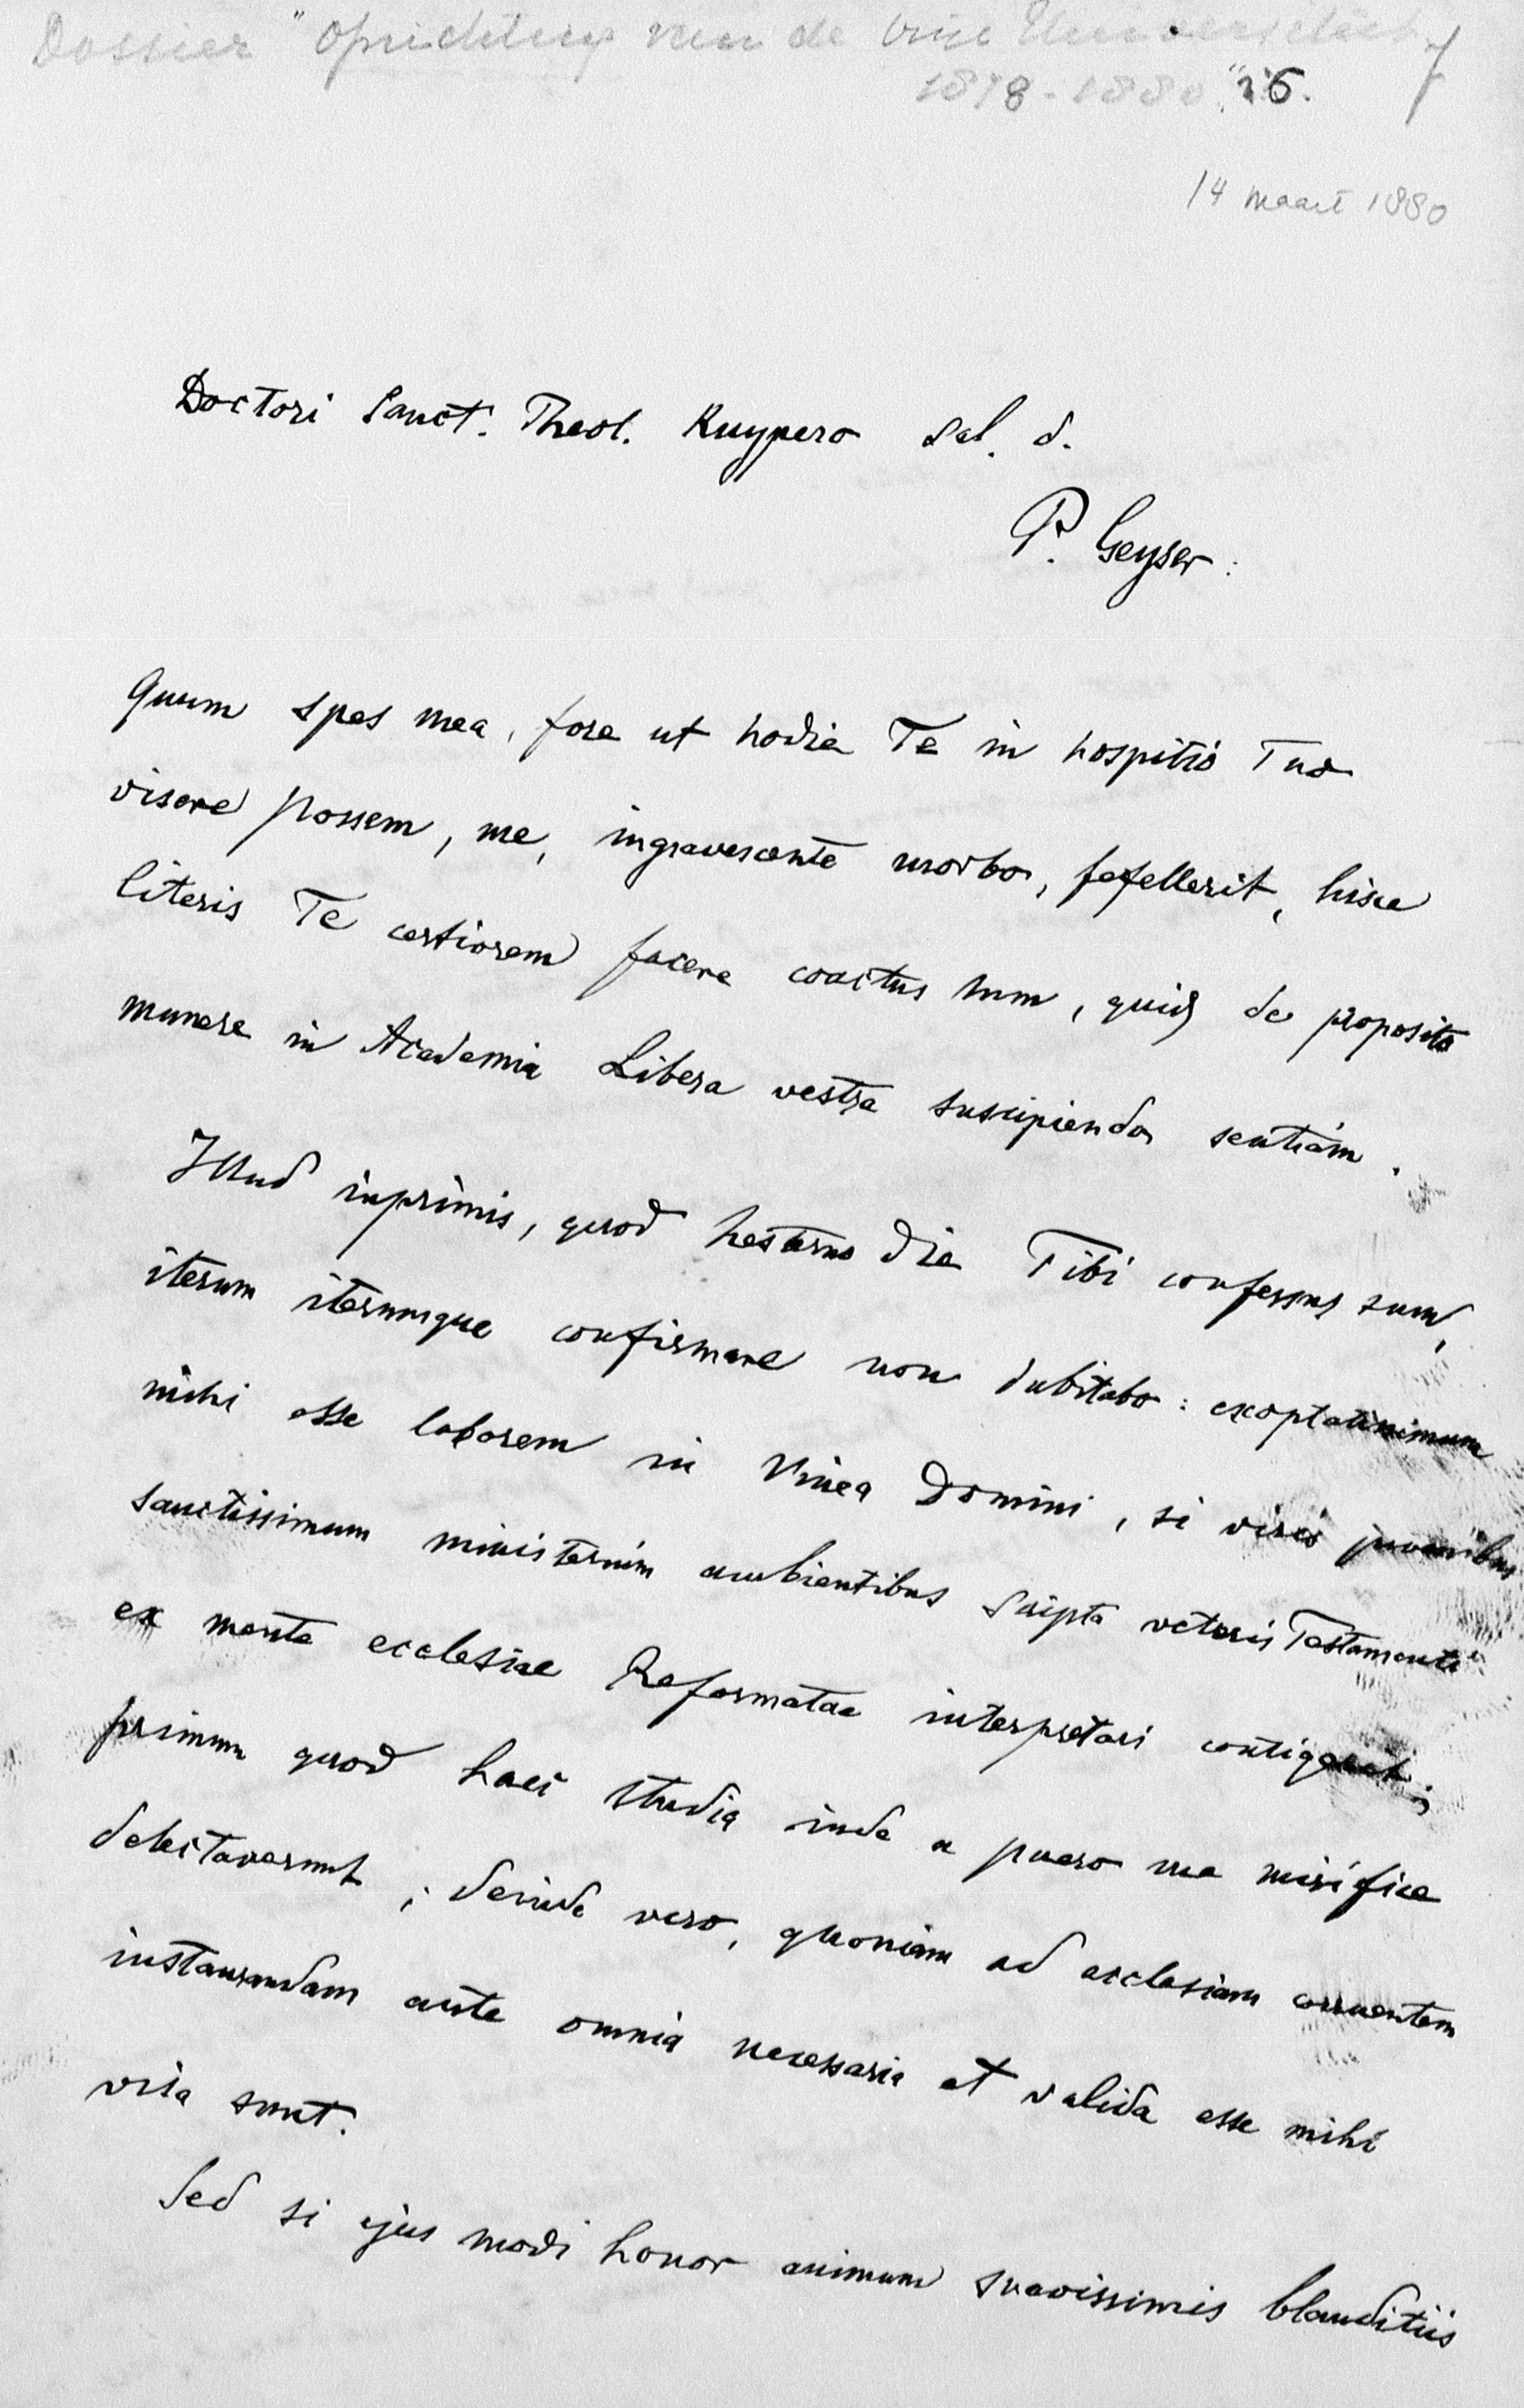 Dossier "Oprichting van de Vrije Universiteit 7
1878-1880" 26.
14 maart 1880
Doctori Sanct. Theol. Kuypero Sal. d.
P. Geyser:
Quum spes mea, fore ut hodie Te in hospitio Tuo
visere possem, me, ingravescente morbo, fefellerit, hisce
literis Te certiorem facere coactus sum, quid de proposito
munere in Academia Libera vestra suscipiendo sentiam.
Illud inprimis, quod hesterno die Tibi confessus sum,
iterum iterumque confirmare non dubitabo: exoptatissimum
mihi esse laborem in Vinea Domini, si viris juvenibus
sanctissimum ministerium ambientibus scripta veteris Testamenti
ex mente ecclesiae Reformatae interpretari contigerit;
primum quod haec studia inde a puero me mirifice
delectaverunt; deinde vero, quoniam ad ecclesiam corruentem
instaurandam ante omnia necessaria et valida esse mihi
visa sunt.
Sed si ejus modi honor animum suavissimis blanditiis